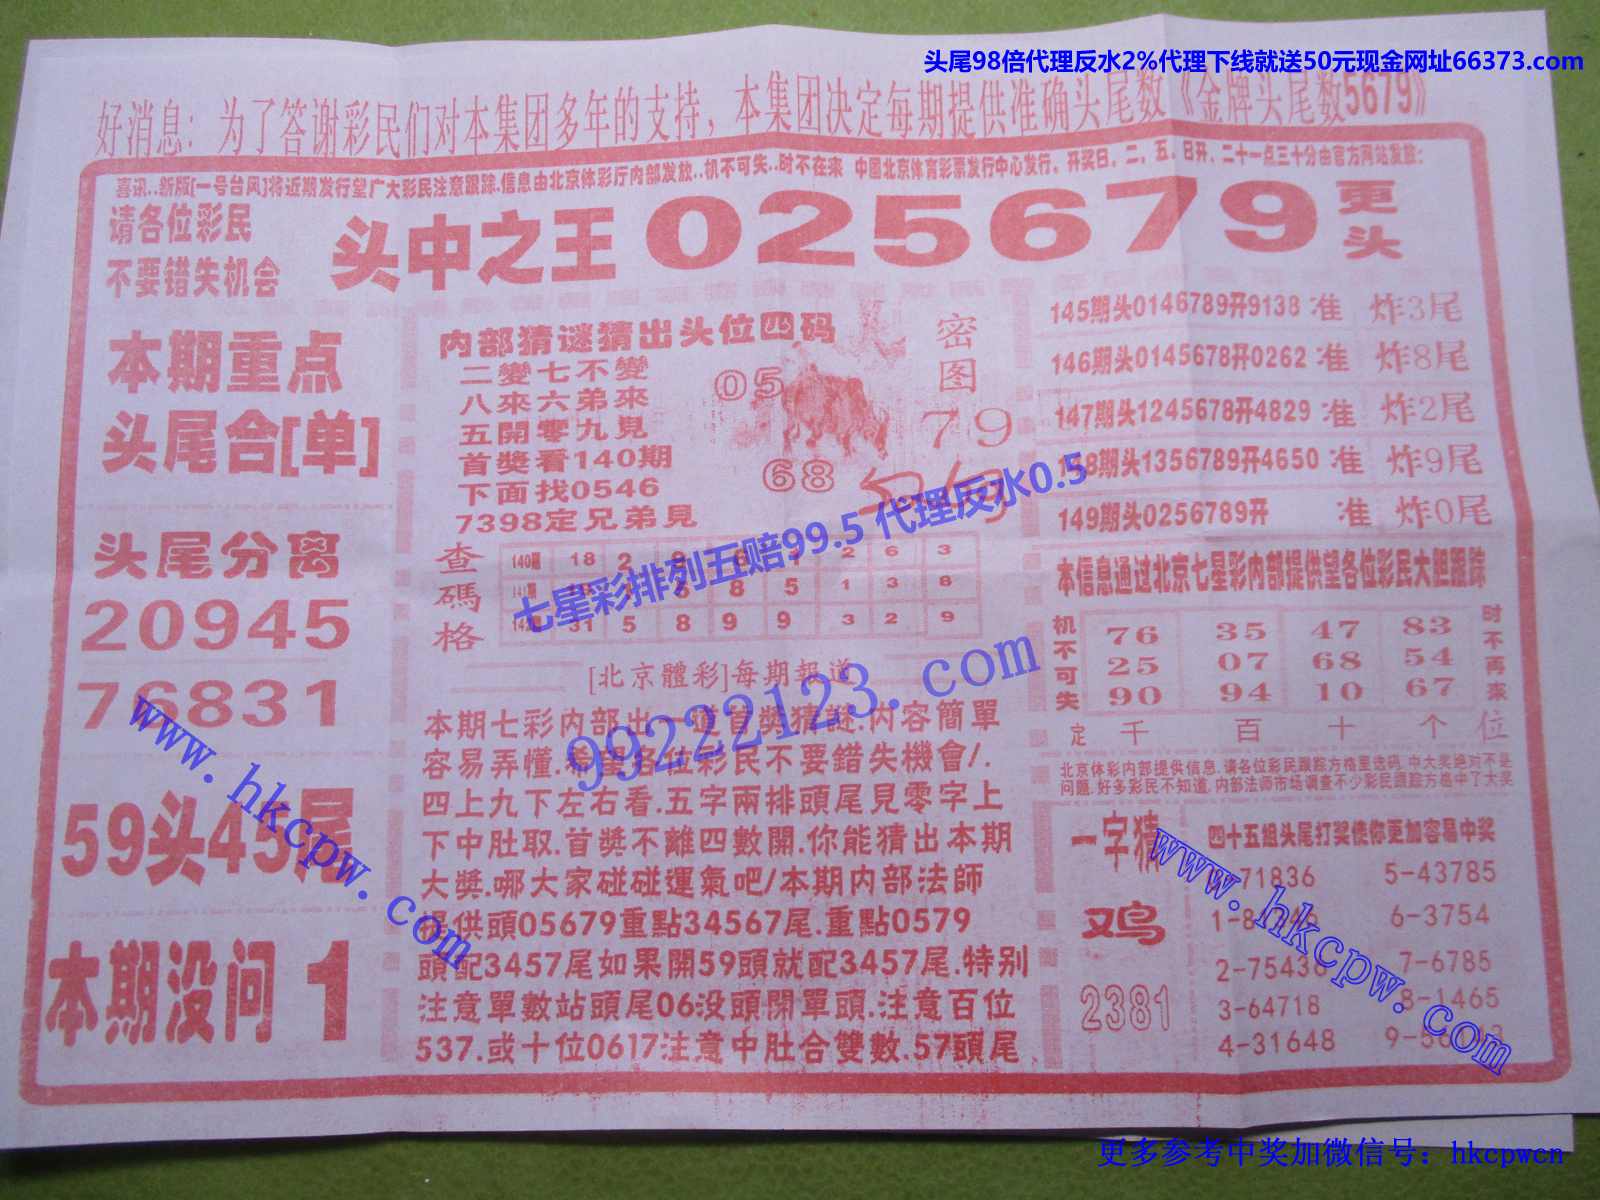 头尾98倍代理反水2%代理下线就送50元现金网址66373.com
好消息：为了答谢彩民们对本集团多年的支持，本集团决定每期提供准确头尾数《金牌头尾数5679》
喜讯..新版[一号台风]将近期发行望广大彩民注意跟踪.信息由北京体彩厅内部发放..机不可失..时不在来 中国北京体育彩票发行中心发行，开奖日，二，五，日开，二十一点三十分由官方网站发放：
请各位彩民
不要错失机会
头中之王 025679 更头
本期重点
头尾合[单]
头尾分离
20945
76831
59头45尾
本期没问 1
内部猜谜猜出头位四码
二變七不變
八來六弟來
五開零九見
首獎看140期
下面找0546
7398定兄弟見
05
68
密图
79
查碼格
140期 18 2 2 6 3
8 5 1 3 8
31 5 8 9 9 3 2 9
[北京體彩]每期報道
本期七彩内部出一道首獎猜謎.内容簡單
容易弄懂.希望各位彩民不要錯失機會/.
四上九下左右看.五字兩排頭尾見零字上
下中肚取.首獎不離四數開.你能猜出本期
大獎.哪大家碰碰運氣吧/本期内部法師
提供頭05679重點34567尾.重點0579
頭配3457尾如果開59頭就配3457尾.特别
注意單數站頭尾06没頭開單頭.注意百位
537.或十位0617注意中肚合雙數.57頭尾
145期头0146789开9138 准 炸3尾
146期头0145678开0262 准 炸8尾
147期头1245678开4829 准 炸2尾
148期头1356789开4650 准 炸9尾
149期头0256789开 准 炸0尾
本信息通过北京七星彩内部提供望各位彩民大胆跟踪
机不可失
76 35 47 83
25 07 68 54
90 94 10 67
时不再来
定 千 百 十 个 位
北京体彩内部提供信息.请各位彩民跟踪方格里选码.中大奖绝对不是
问题.好多彩民不知道.内部法师市场调查不少彩民跟踪方格中了大奖
一字猜
鸡
2381
四十五组头尾打奖使你更加容易中奖
71836 5-43785
6-3754
2-75436 7-6785
3-64718 8-1465
4-31648
七星彩排列五赔99.5 代理反水0.5
99222123.com
www.hkcpw.com
www.hkcpw.com
更多参考中奖加微信号：hkcpwcn